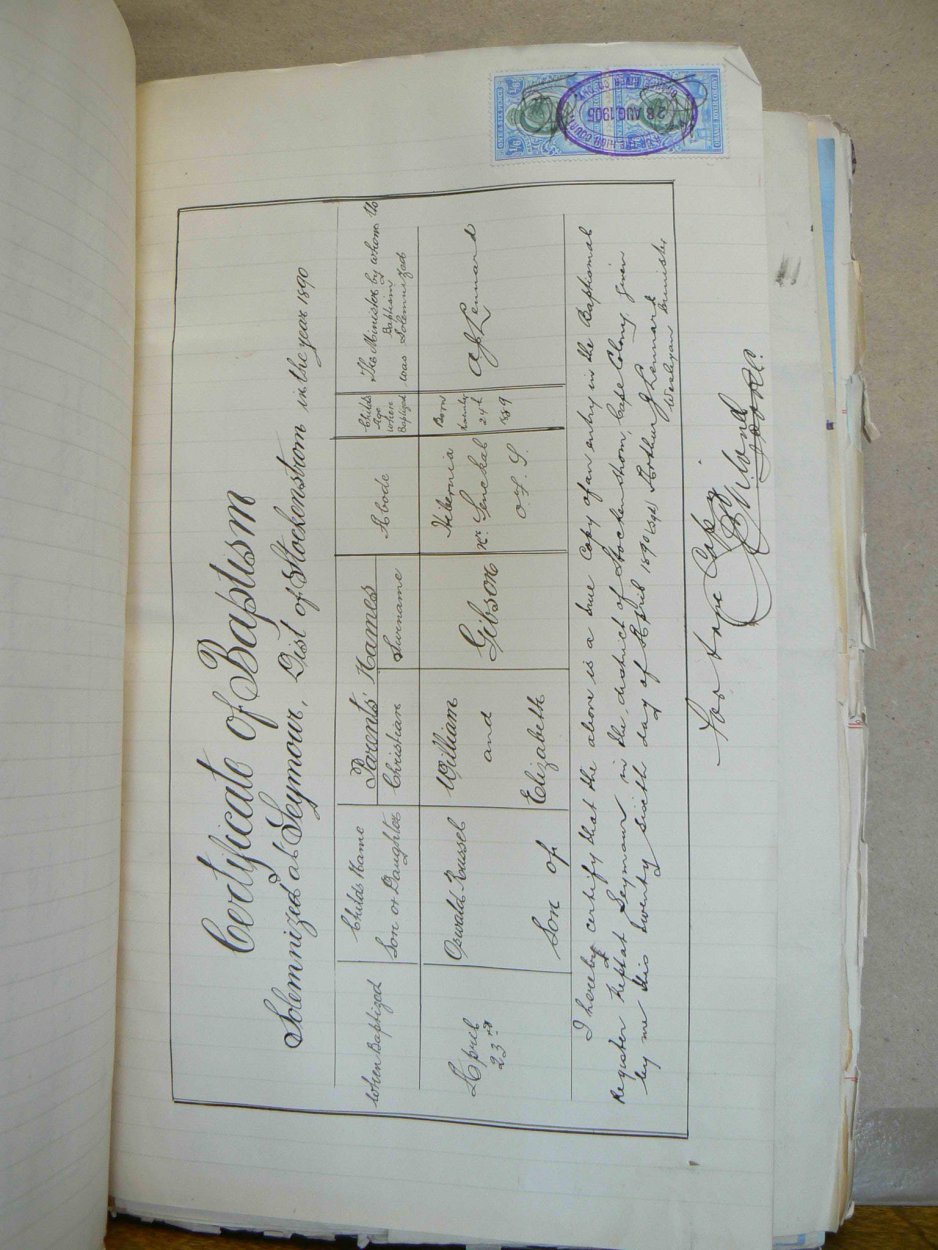 Certificate of Baptism
Solemnized at Seymour, Dist of Stockenstrom in the year 1890
When Baptized
Child's Name
Son or Daughter
Parents' Names
Christian
Surname
Abode
Child's
Age
when
Baptized
The Minister by whom the
Baptism
was Solemnized
April
23rd
Oswald Russel
Son of
William
and
Elizabeth
Gibson
Hibernia
nr Senekal
O. F. S.
Born
24th
1889
A J Lennard
I hereby certify that the above is a true Copy of an entry in the Baptismal
Register kept at Seymour in the district of Stockenstrom, Cape Colony given
by me this twenty sixth day of April 1890 (sgd) Arthur J Lennard
Wesleyan Minister
For true Copy
28 AUG. 1905